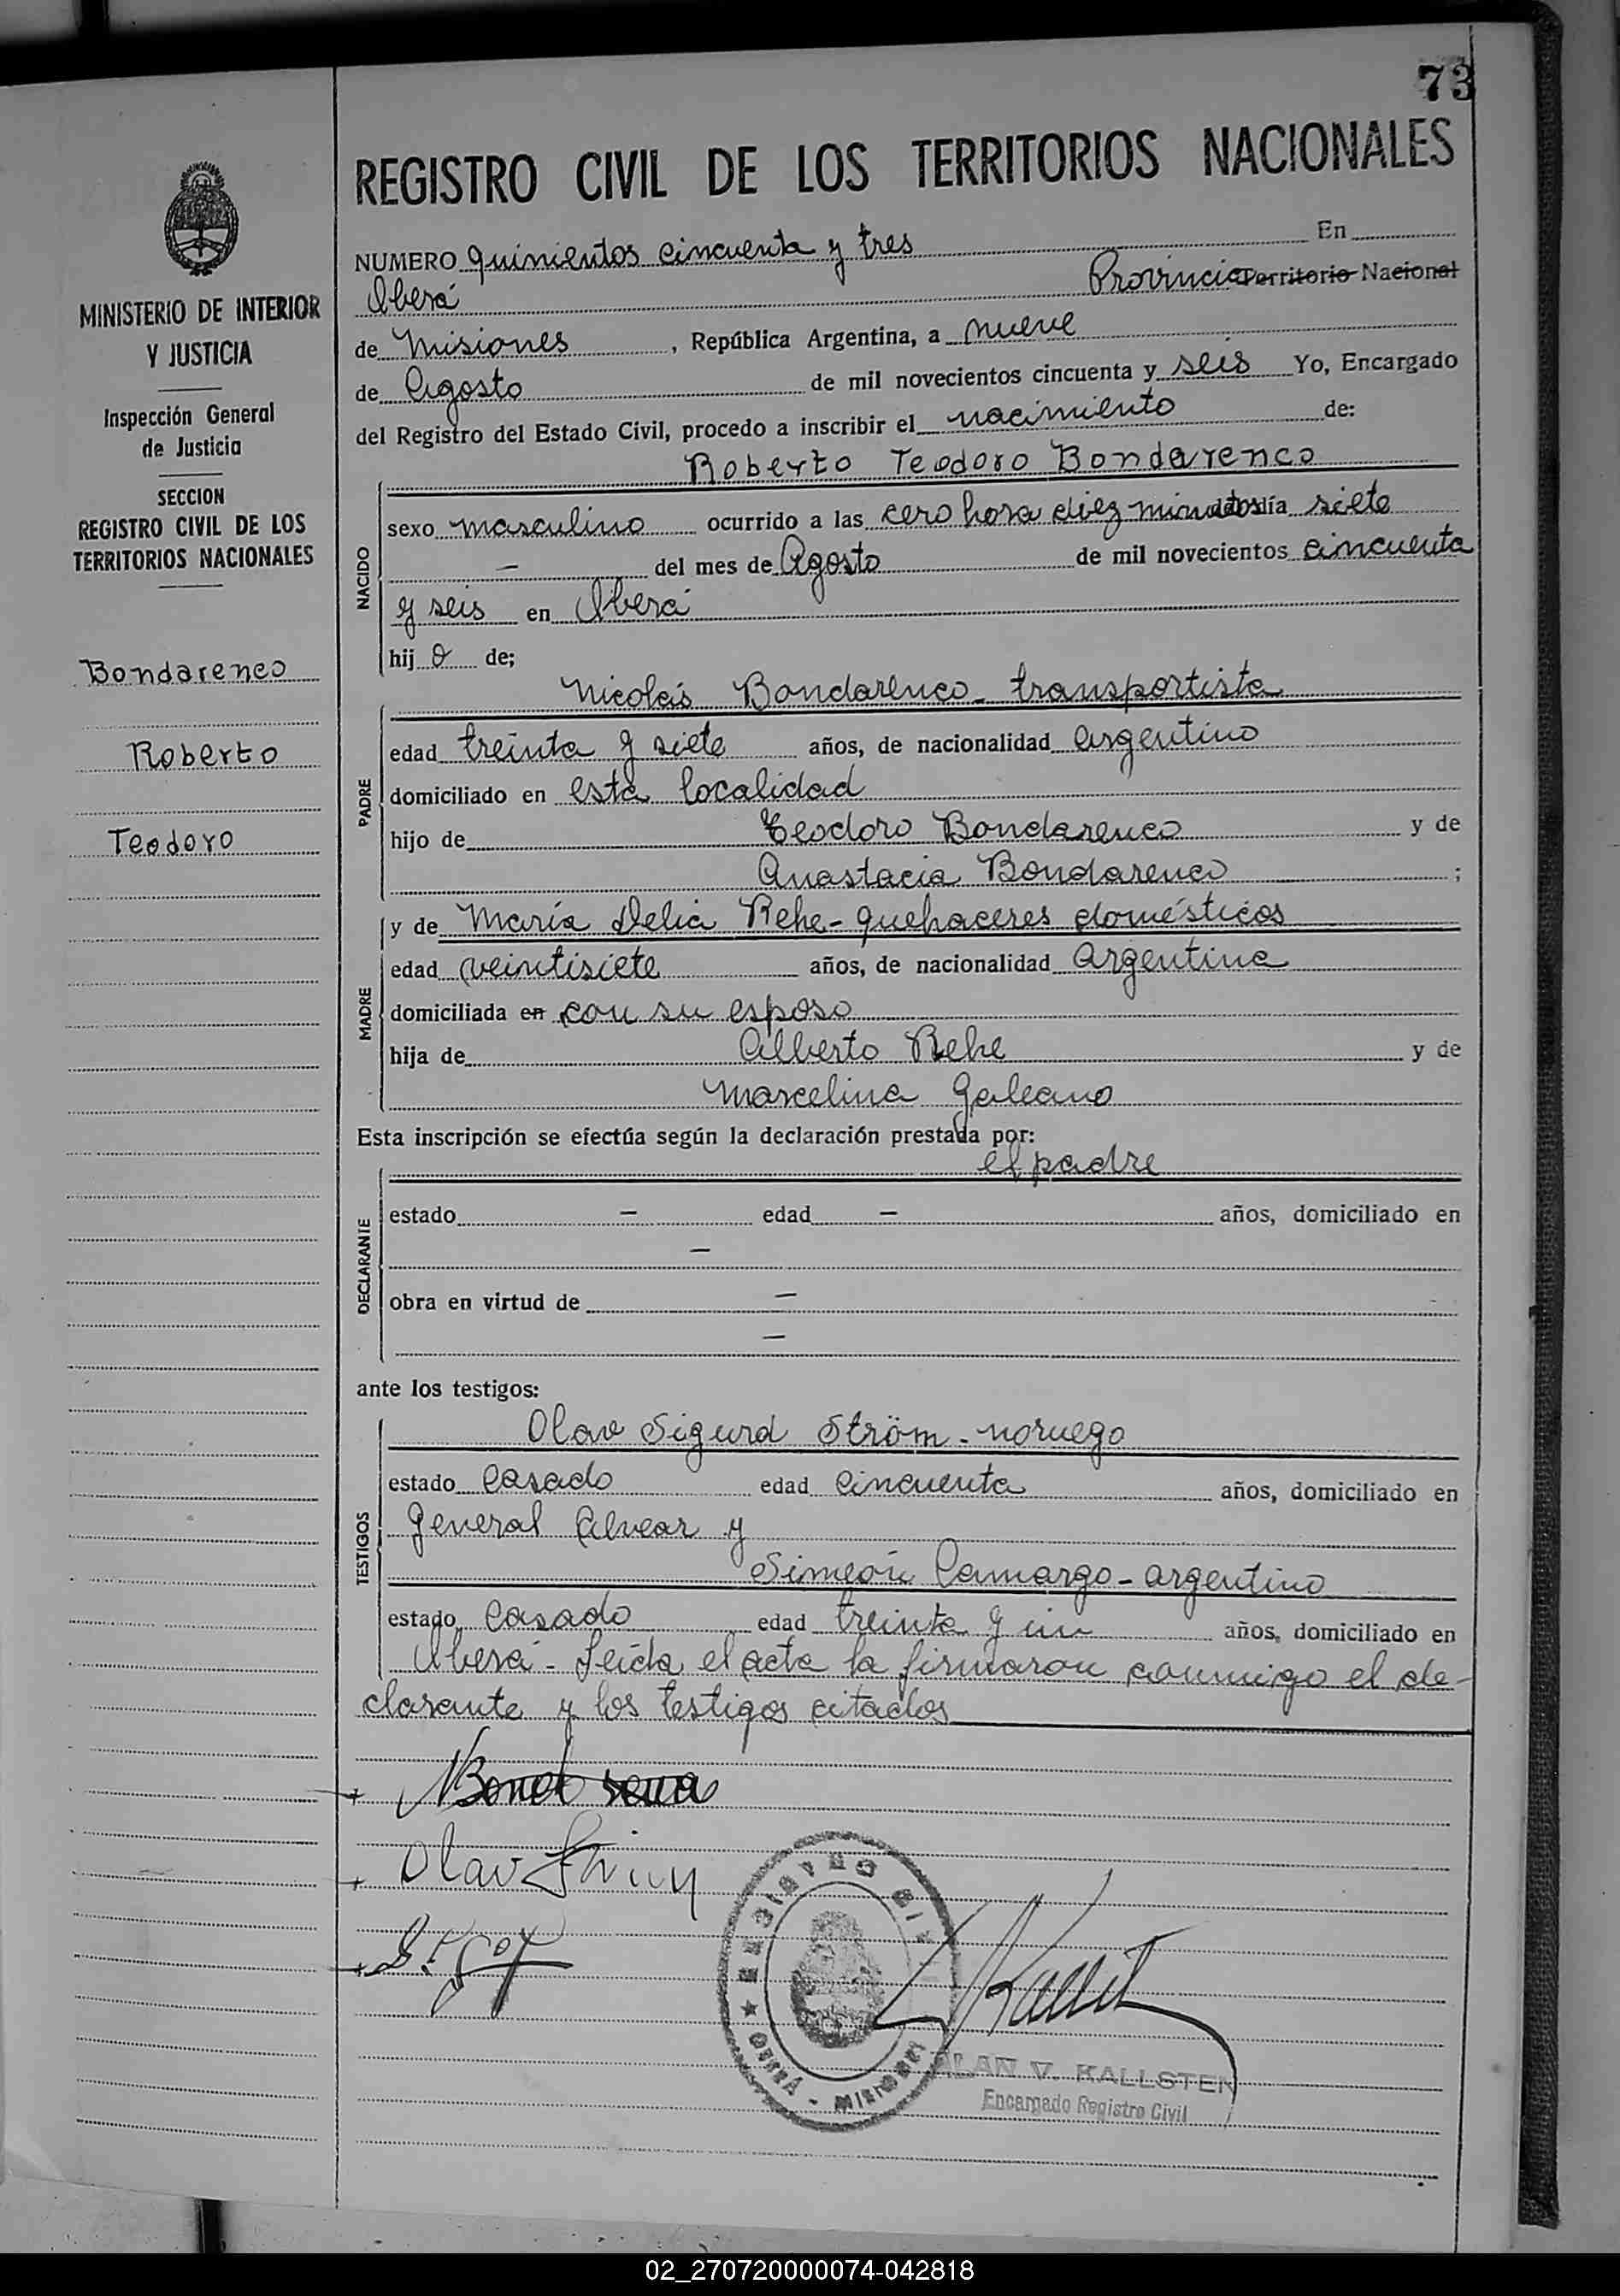 73
REGISTRO CIVIL DE LOS TERRITORIOS NACIONALES
MINISTERIO DE INTERIOR
Y JUSTICIA
Inspección General
de Justicia
SECCION
REGISTRO CIVIL DE LOS
TERRITORIOS NACIONALES
Bondarenco
Roberto
Teodoro
NUMERO quinientos cincuenta y tres En
Oberá Provincia Territorio Nacional
de Misiones, República Argentina, a nueve
de Agosto de mil novecientos cincuenta y seis Yo, Encargado
del Registro del Estado Civil, procedo a inscribir el nacimiento de:
Roberto Teodoro Bondarenco
NACIDO
sexo masculino ocurrido a las cero hora diez minutos día siete
— del mes de Agosto de mil novecientos cincuenta
y seis en Oberá
hijo de;
Nicolás Bondarenco - transportista
PADRE
edad treinta y siete años, de nacionalidad argentino
domiciliado en esta localidad
hijo de Teodoro Bondarenco y de
Anastacia Bondarenco ;
y de María Delia Rehe - quehaceres domésticos
MADRE
edad veintisiete años, de nacionalidad argentina
domiciliada en con su esposo
hija de Alberto Rehe y de
Marcelina Galeano
Esta inscripción se efectúa según la declaración prestada por:
el padre
DECLARANTE
estado — edad — años, domiciliado en
—
obra en virtud de —
—
ante los testigos:
TESTIGOS
Olav Sigurd Ström - noruego
estado casado edad cincuenta años, domiciliado en
General Alvear y
Simeón Camargo - argentino
estado casado edad treinta y un años, domiciliado en
Oberá - Leída el acta la firmaron conmigo el de-
clarante y los testigos citados
Olav
REGISTRO CIVIL
OBERÁ - MISIONES
ALAN V. KALLSTEN
Encargado Registro Civil
02_270720000074-042818